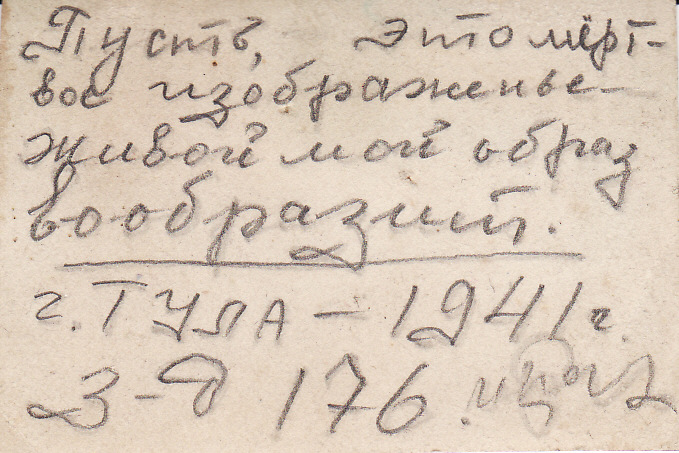 Пусть, это мёрт-
вое изображенье-
живой мой образ
вообразит.
г. Тула - 1941 г.
З-д 176.